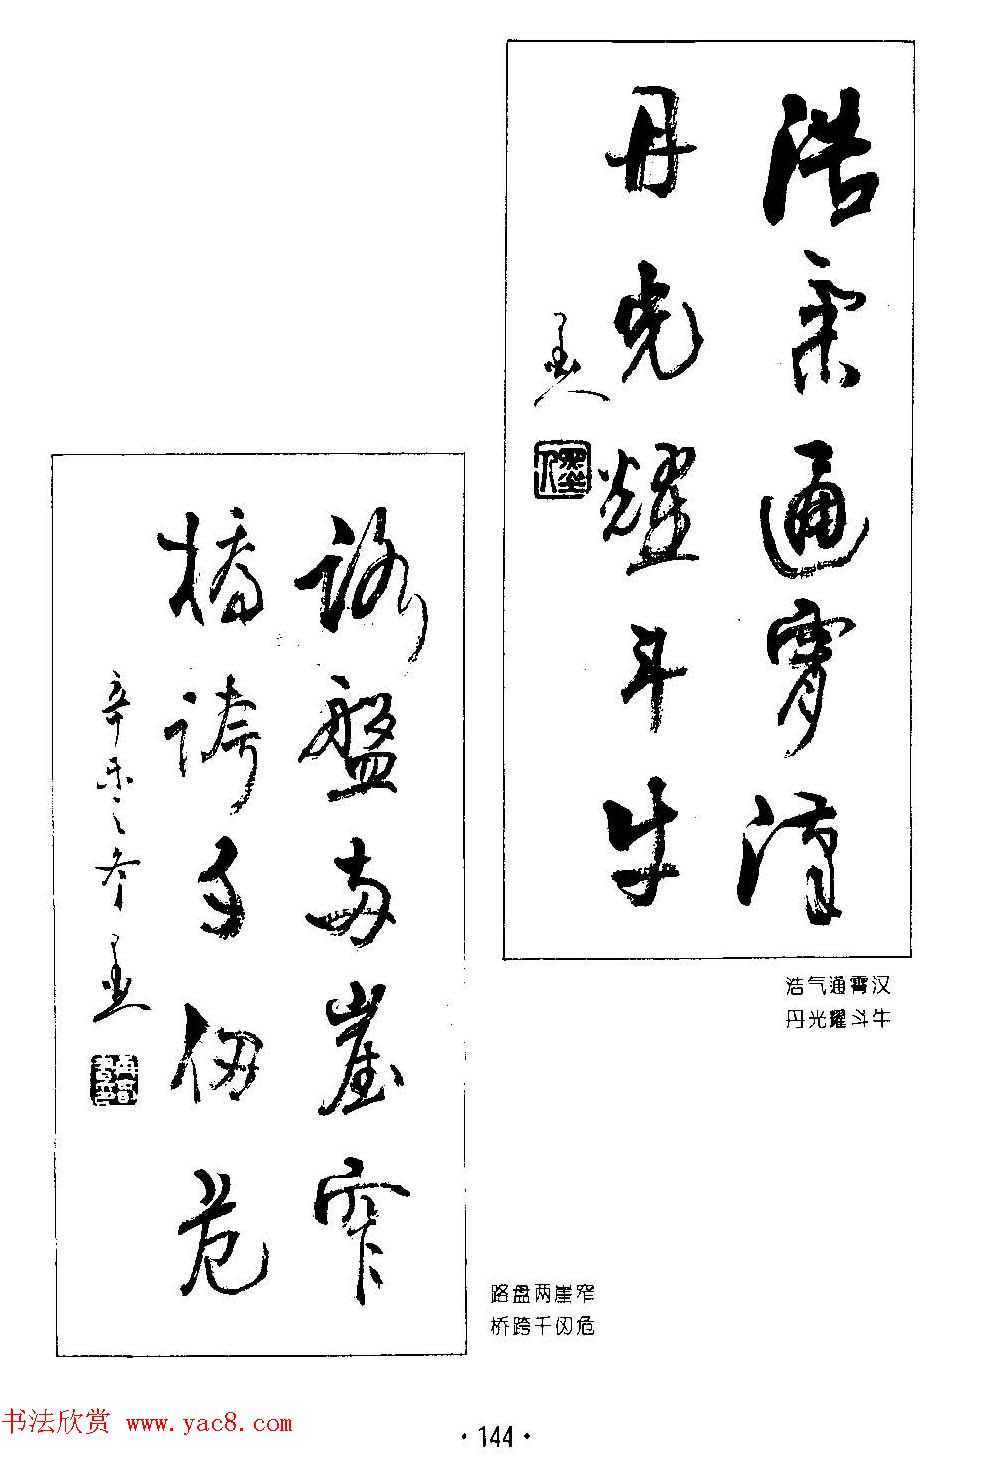 浩气通霄汉
丹光耀斗牛
墨人
浩气通霄汉
丹光耀斗牛
路盘两崖窄
桥跨千仞危
路盘两崖窄
桥跨千仞危
书法欣赏 www.yac8.com
·144·